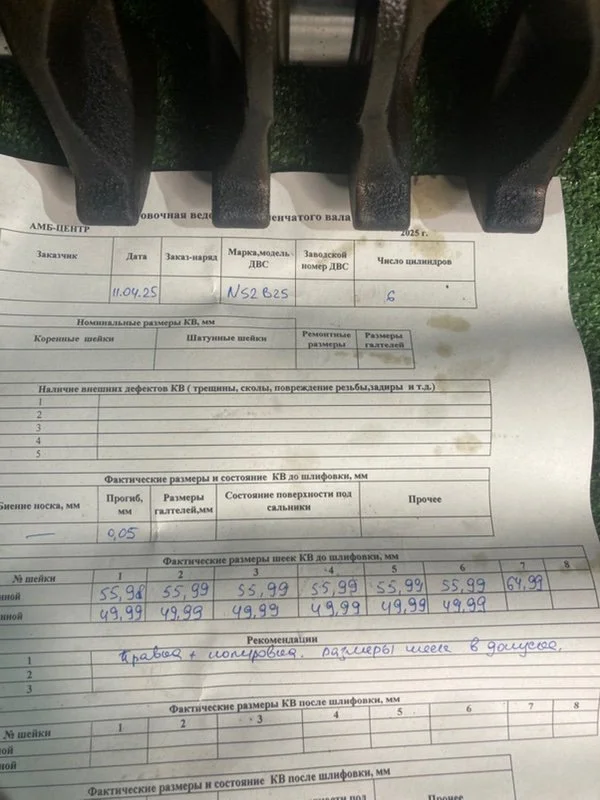 овочная вед енчатого вала
АМБ-ЦЕНТР 2025 г.
Заказчик Дата Заказ-наряд Марка,модель ДВС Заводской номер ДВС Число цилиндров
11.04.25 N52B25 6
Номинальные размеры КВ, мм
Коренные шейки Шатунные шейки Ремонтные размеры Размеры галтелей
Наличие внешних дефектов КВ ( трещины, сколы, повреждение резьбы,задиры и т.д.)
1
2
3
4
5
Фактические размеры и состояние КВ до шлифовки, мм
Биение носка, мм Прогиб, мм Размеры галтелей,мм Состояние поверхности под сальники Прочее
— 0,05
Фактические размеры шеек КВ до шлифовки, мм
№ шейки 1 2 3 4 5 6 7 8
нной 55,98 55,99 55,99 55,99 55,99 55,99 64,99
нной 49,99 49,99 49,99 49,99 49,99 49,99
Рекомендации
1 Правка + полировка. Размеры шеек в допуске.
2
3
Фактические размеры КВ после шлифовки, мм
№ шейки 1 2 3 4 5 6 7 8
ной
ной
Фактические размеры и состояние КВ после шлифовки, мм
ности под Прочее